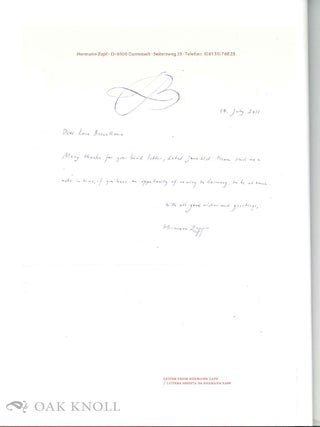 Hermann Zapf · D-6100 Darmstadt · Seitersweg 35 · Telefon
July
Dear
Many thanks for your kind letter, dated Please send me a
note in time, if you have an opportunity of coming to Germany, to be at home.
With all good wishes and greetings,
Hermann Zapf
LETTER FROM HERMANN ZAPF
/ LETTERA INEDITA DA HERMANN ZAPF
OAK KNOLL